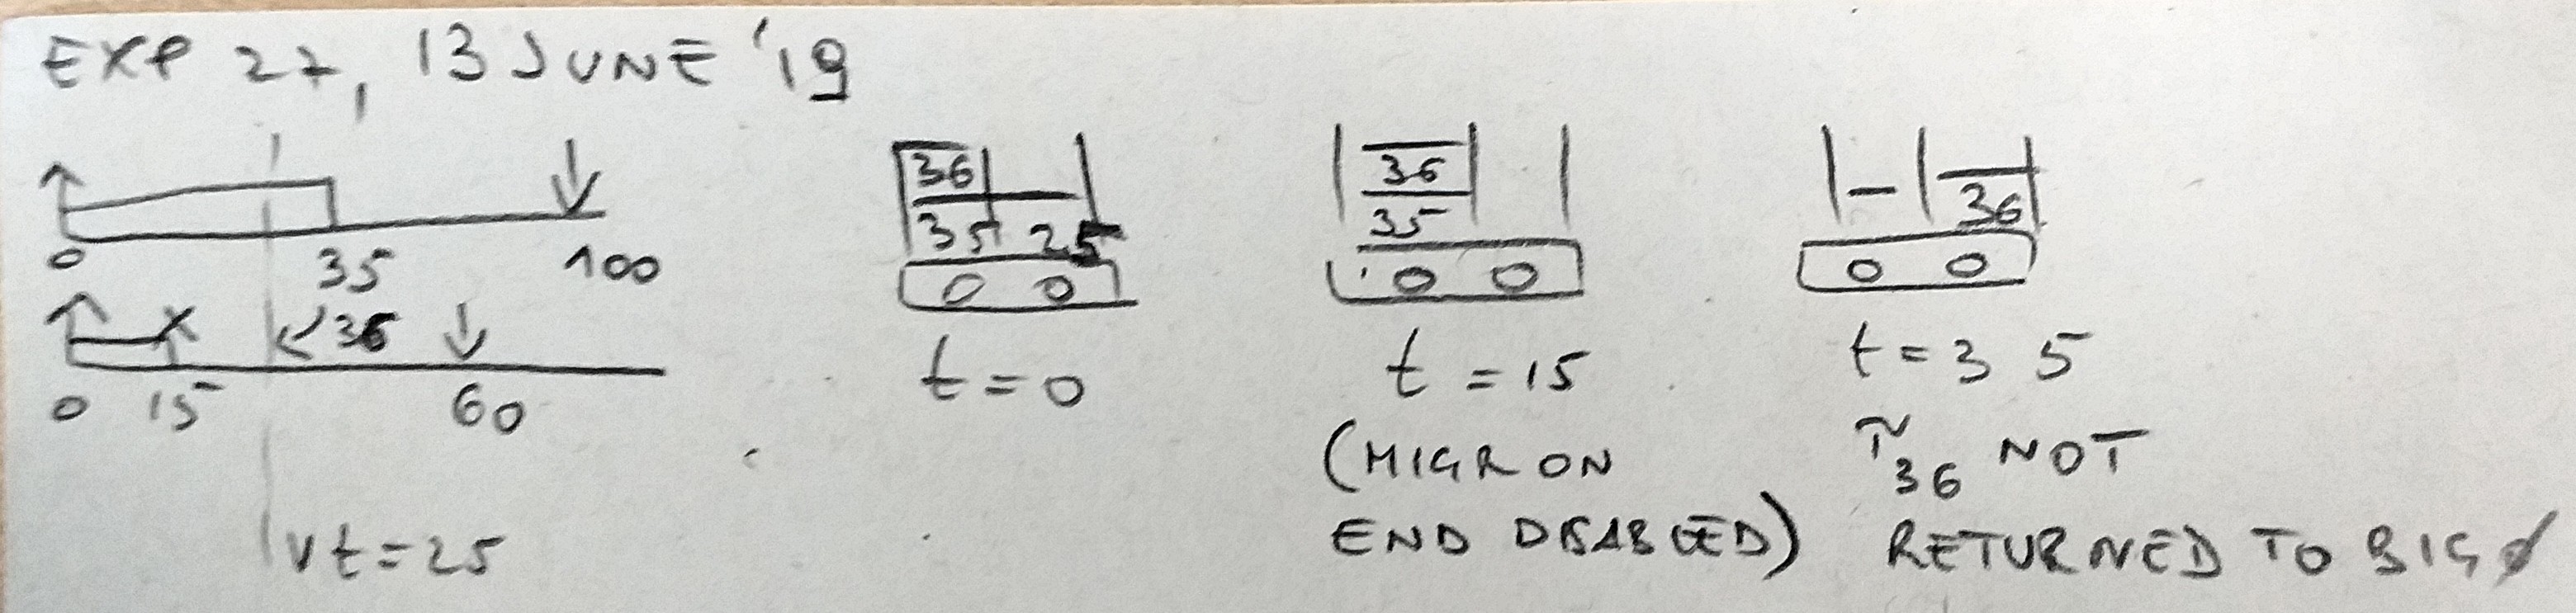 EXP 27, 13 JUNE '19
0 35 100
36
0 15 60
vt=25
36
35 25
0 0
t=0
36
35
0 0
t=15
(MIGR ON
END DISABLED)
36
0 0
t=35
τ36 NOT
RETURNED TO BIG